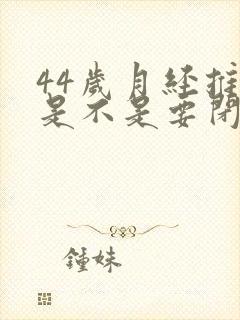 44歲月经推
是不是要闭
鍾妹